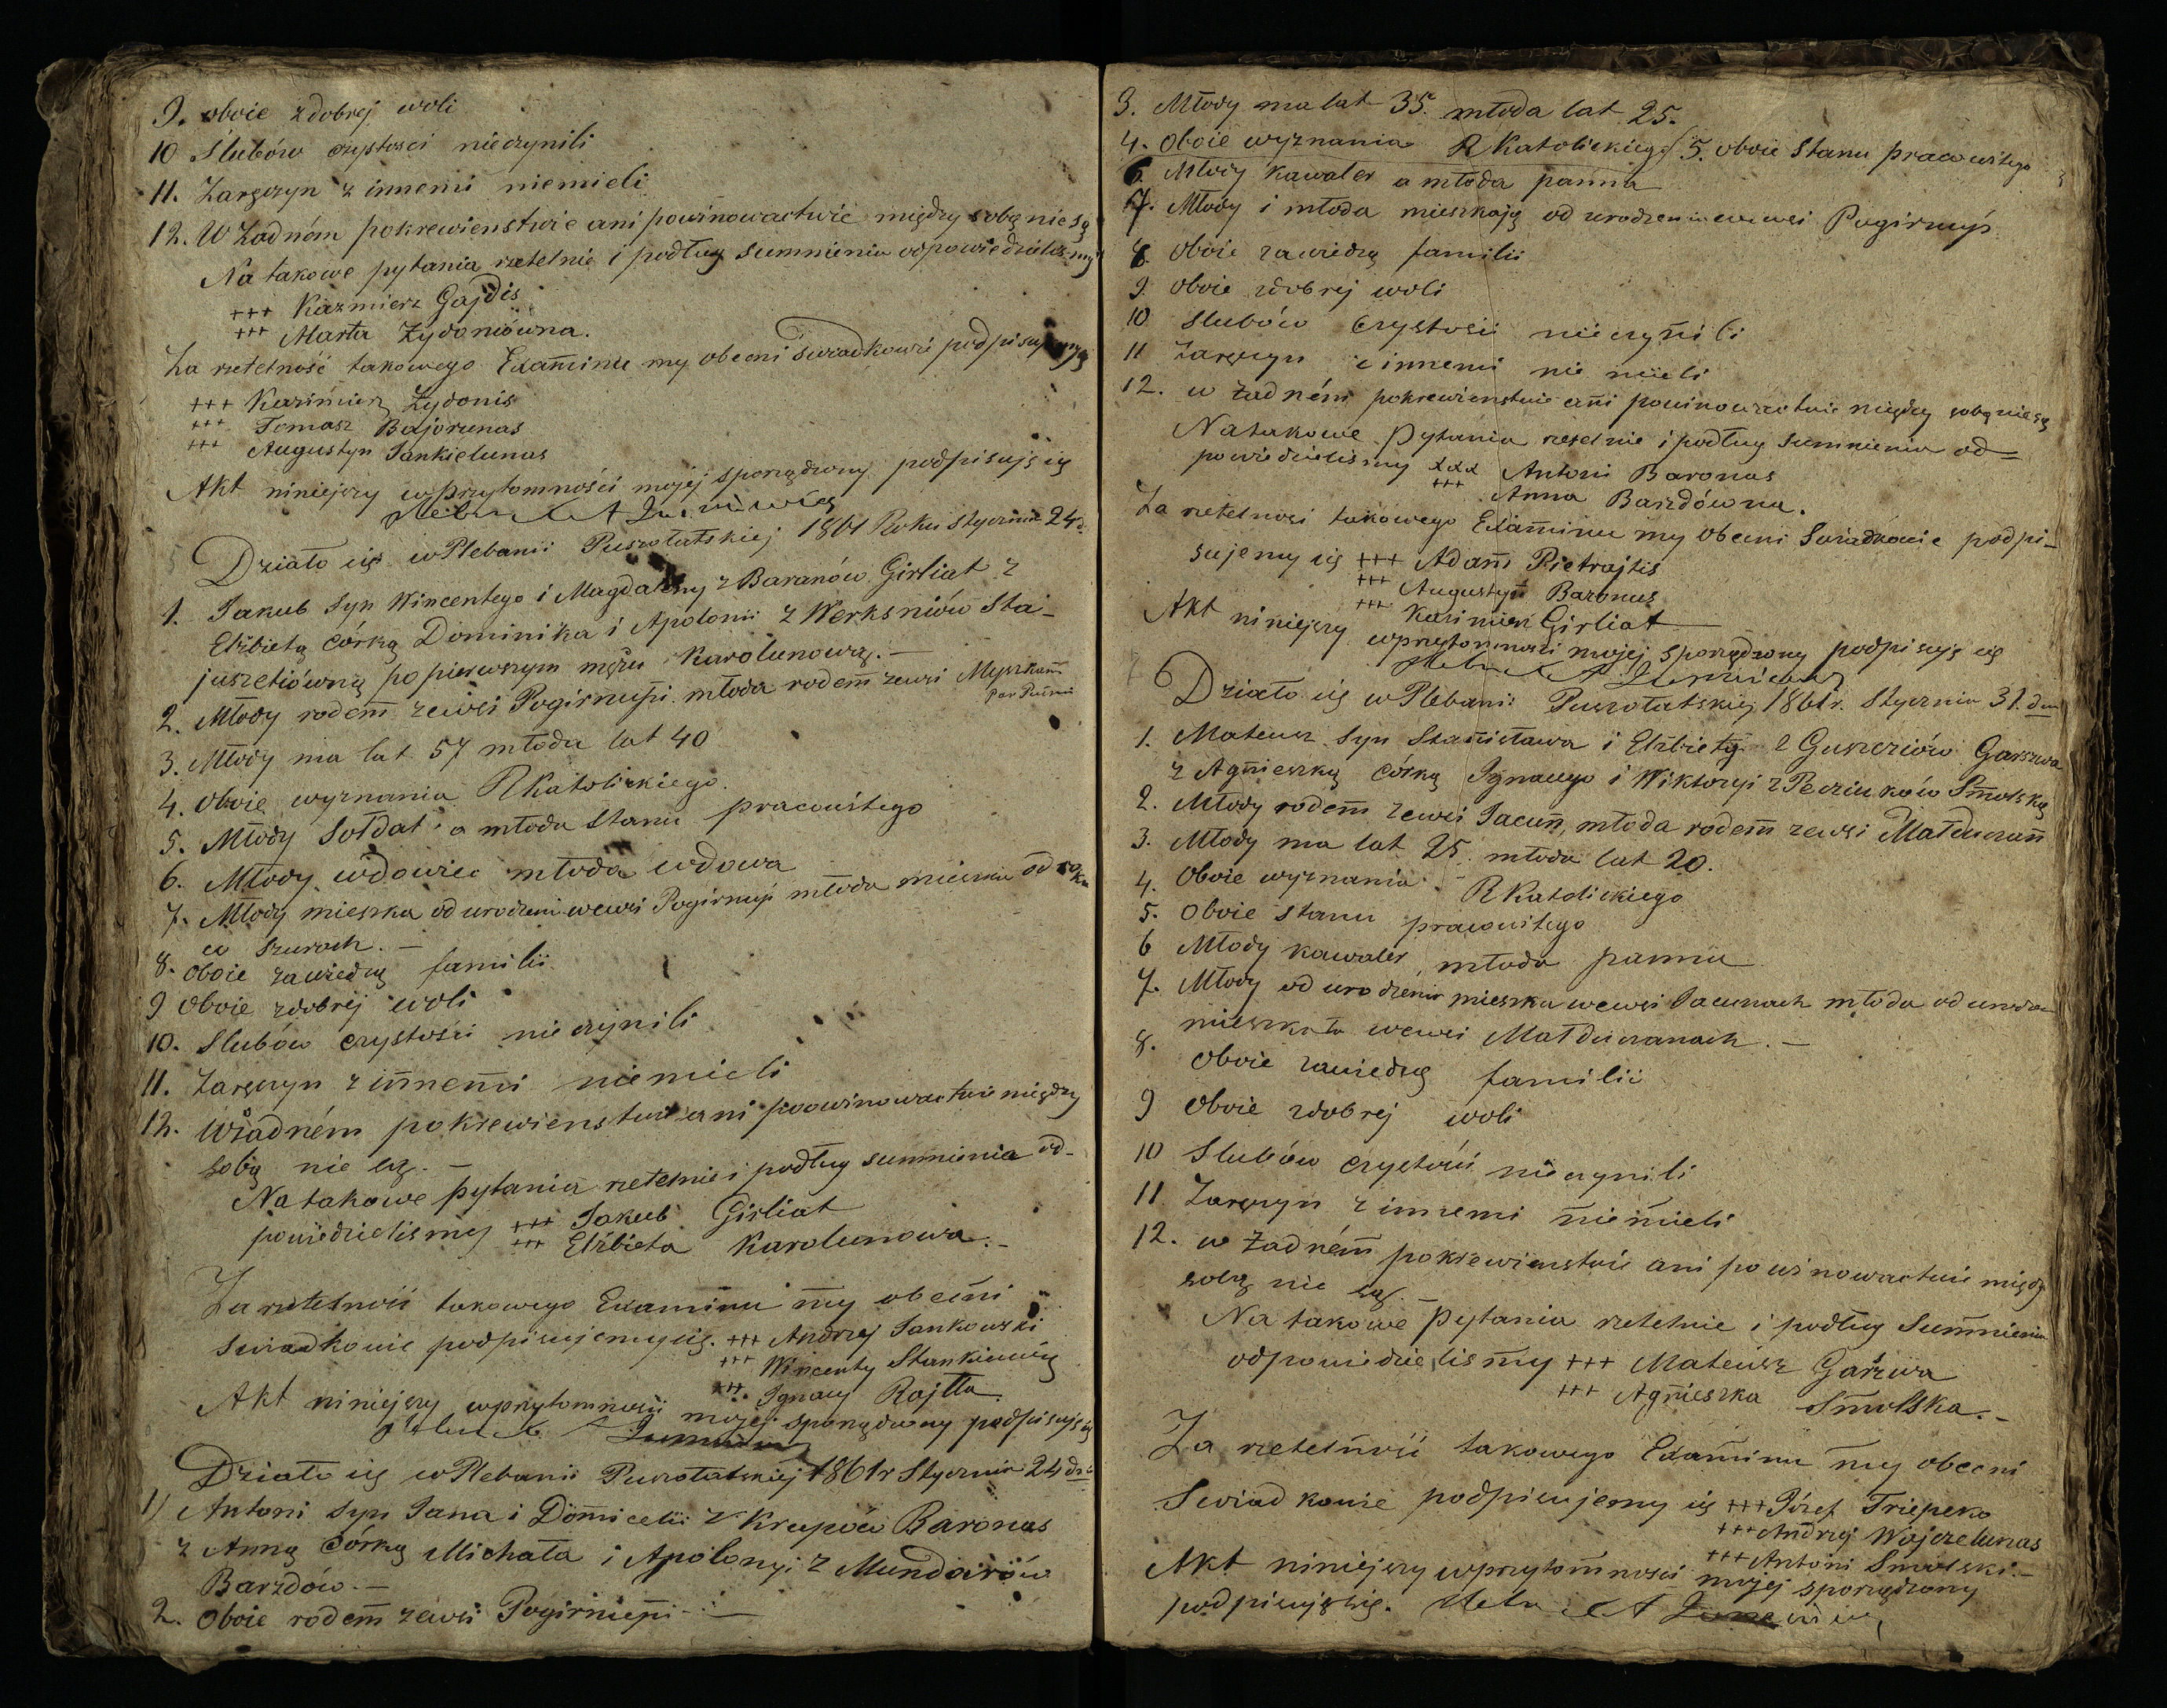 9. oboie zdobrej woli
10 Slubów czystosci nieczynili
11. Zaręczyn z innemi niemieli
12. W Żadnóm pokrewienstwie ani powinowactwie między sobą nie są
Na takowe pytania rzetelnie i podług summienia odpowiedzielismy
+++ Kazmierz Gajdis
+++ Marta Zydoniówna.
Za rzetelność takowego Examinu my obecni swiadkowie podpisujemy się
+++ Kazimierz Zydonis
+++ Tomasz Bajorunas
+++ Augustyn Jankielunas
Akt niniejszy wprzytomności mojej sporządzony podpisuję się
Działo się w Plebanii Puszołatskiej 1861 Roku Stycznia 24 d.
1. Jakub syn Wincentego i Magdaleny z Baranów Girliat z
Elżbietą córką Dominika i Apolonii z Werksniów Sta-
juszelówną po pierwszym mężu Karolunową. —
2. Młody rodem zewsi Pogirnupi młoda rodem zewsi Myszkam
3. Młody ma lat 57 młoda lat 40
4. oboie wyznania RKatolickiego.
5. Młody Sołdat a młoda stanu pracowitego
6. Młody wdowiec młoda wdowa
7. Młody mieszka od urodzeni wewsi Pogirnupi młoda mieszka od roku
w Szurach. —
8. oboie zawiedzą familii
9 oboie zdobrej woli
10. Slubów czystości nie czynili
11. Zaręczyn z innemi niemieli
12. W żadném pokrewienstwie ani powinowactwie między
sobą nie są. —
Na takowe pytania rzetelnie i podług summienia od-
powiedzielismy +++ Jakub Girliat
+++ Elżbieta Karolunowa. —
Za rzetelność takowego Examinu my obecni
swiadkowie podpisujemy się. +++ Andrzej Jankowski
+++ Wincenty Stankiewicz
+++ Ignacy Rojtta
Akt niniejszy wprzytomności mojej sporządzony podpisuję się
Działo się w Plebanii Puszołatskiej 1861r Stycznia 24 dn.
1) Antoni syn Jana i Domicelii z Krupów Baronas
z Anną Córką Michała i Apolonyi z Mundairów
Barzdów. —
2. Oboie rodem zewsi Pogirniepi —
3. Młody ma lat 35. młoda lat 25.
4. oboie wyznania RKatolickiego / 5. oboie Stanu pracowitego
6. Młody Kawaler a młoda panna
7. Młody i młoda mieszkają od urodzenia wewsi Pogirnup.
8. oboie zawiedzą familii
9. oboie zdobrej woli
10 slubów Czystości nieczynili
11 Zaręczyn z innemi nie mieli
12. w Żadném pokrewienstwie ani powinowactwie między sobą nie są
Na takowe Pytania rzetelnie i podług summienia od=
powiedzielismy xxx Antoni Baronas
+++ Anna Barzdówna.
Za rzetelnosci takowego Examinu my obecni swiadkowie podpi-
sujemy się +++ Adam Pietrajtis
+++ Augustyn Baronus
+++ Kazimierz Girliat
Akt niniejszy wprzytomnosci mojej sporządzony podpisuję się
Działo się w Plebanii Puszołatskiej 1861 r. Stycznia 31. dnia
1. Mateusz syn Stanisława i Elżbiety z Guszcziów Garszwa
z Agnieszką córką Ignacego i Wiktoryi z Pecziuków Smolską
2. Młody rodem zewsi Jacun, młoda rodem zewsi Małduczan
3. Młody ma lat 25. młoda lat 20.
4. Oboie wyznania RKatolickiego
5. oboie stanu pracowitego
6 Młody kawaler młoda panna
7. Młody od urodzenia mieszka wewsi Jacunach młoda od urodzen
mieszkała wewsi Małduczanach. —
8. Oboie zawiedzą familii
9 Oboie zdobrej woli
10 Slubów czystości nieczynili
11. Zaręczyn z innemi niemieli
12. w Żadném pokrewienstwie ani powinowactwie między
sobą nie są. —
Na takowe Pytania rzetelnie i podług Summienia
odpowiedzielismy +++ Mateusz Garszwa
+++ Agnieszka Smolska. —
Za rzetelność takowego Examinu my obecni
Swiadkowie podpisujemy się +++ Józef Triepeko
+++ Andrzej Wojczelunas
+++ Antoni Smolski. —
Akt niniejszy wprzytomnosci mojej sporządzony
podpisuję się.